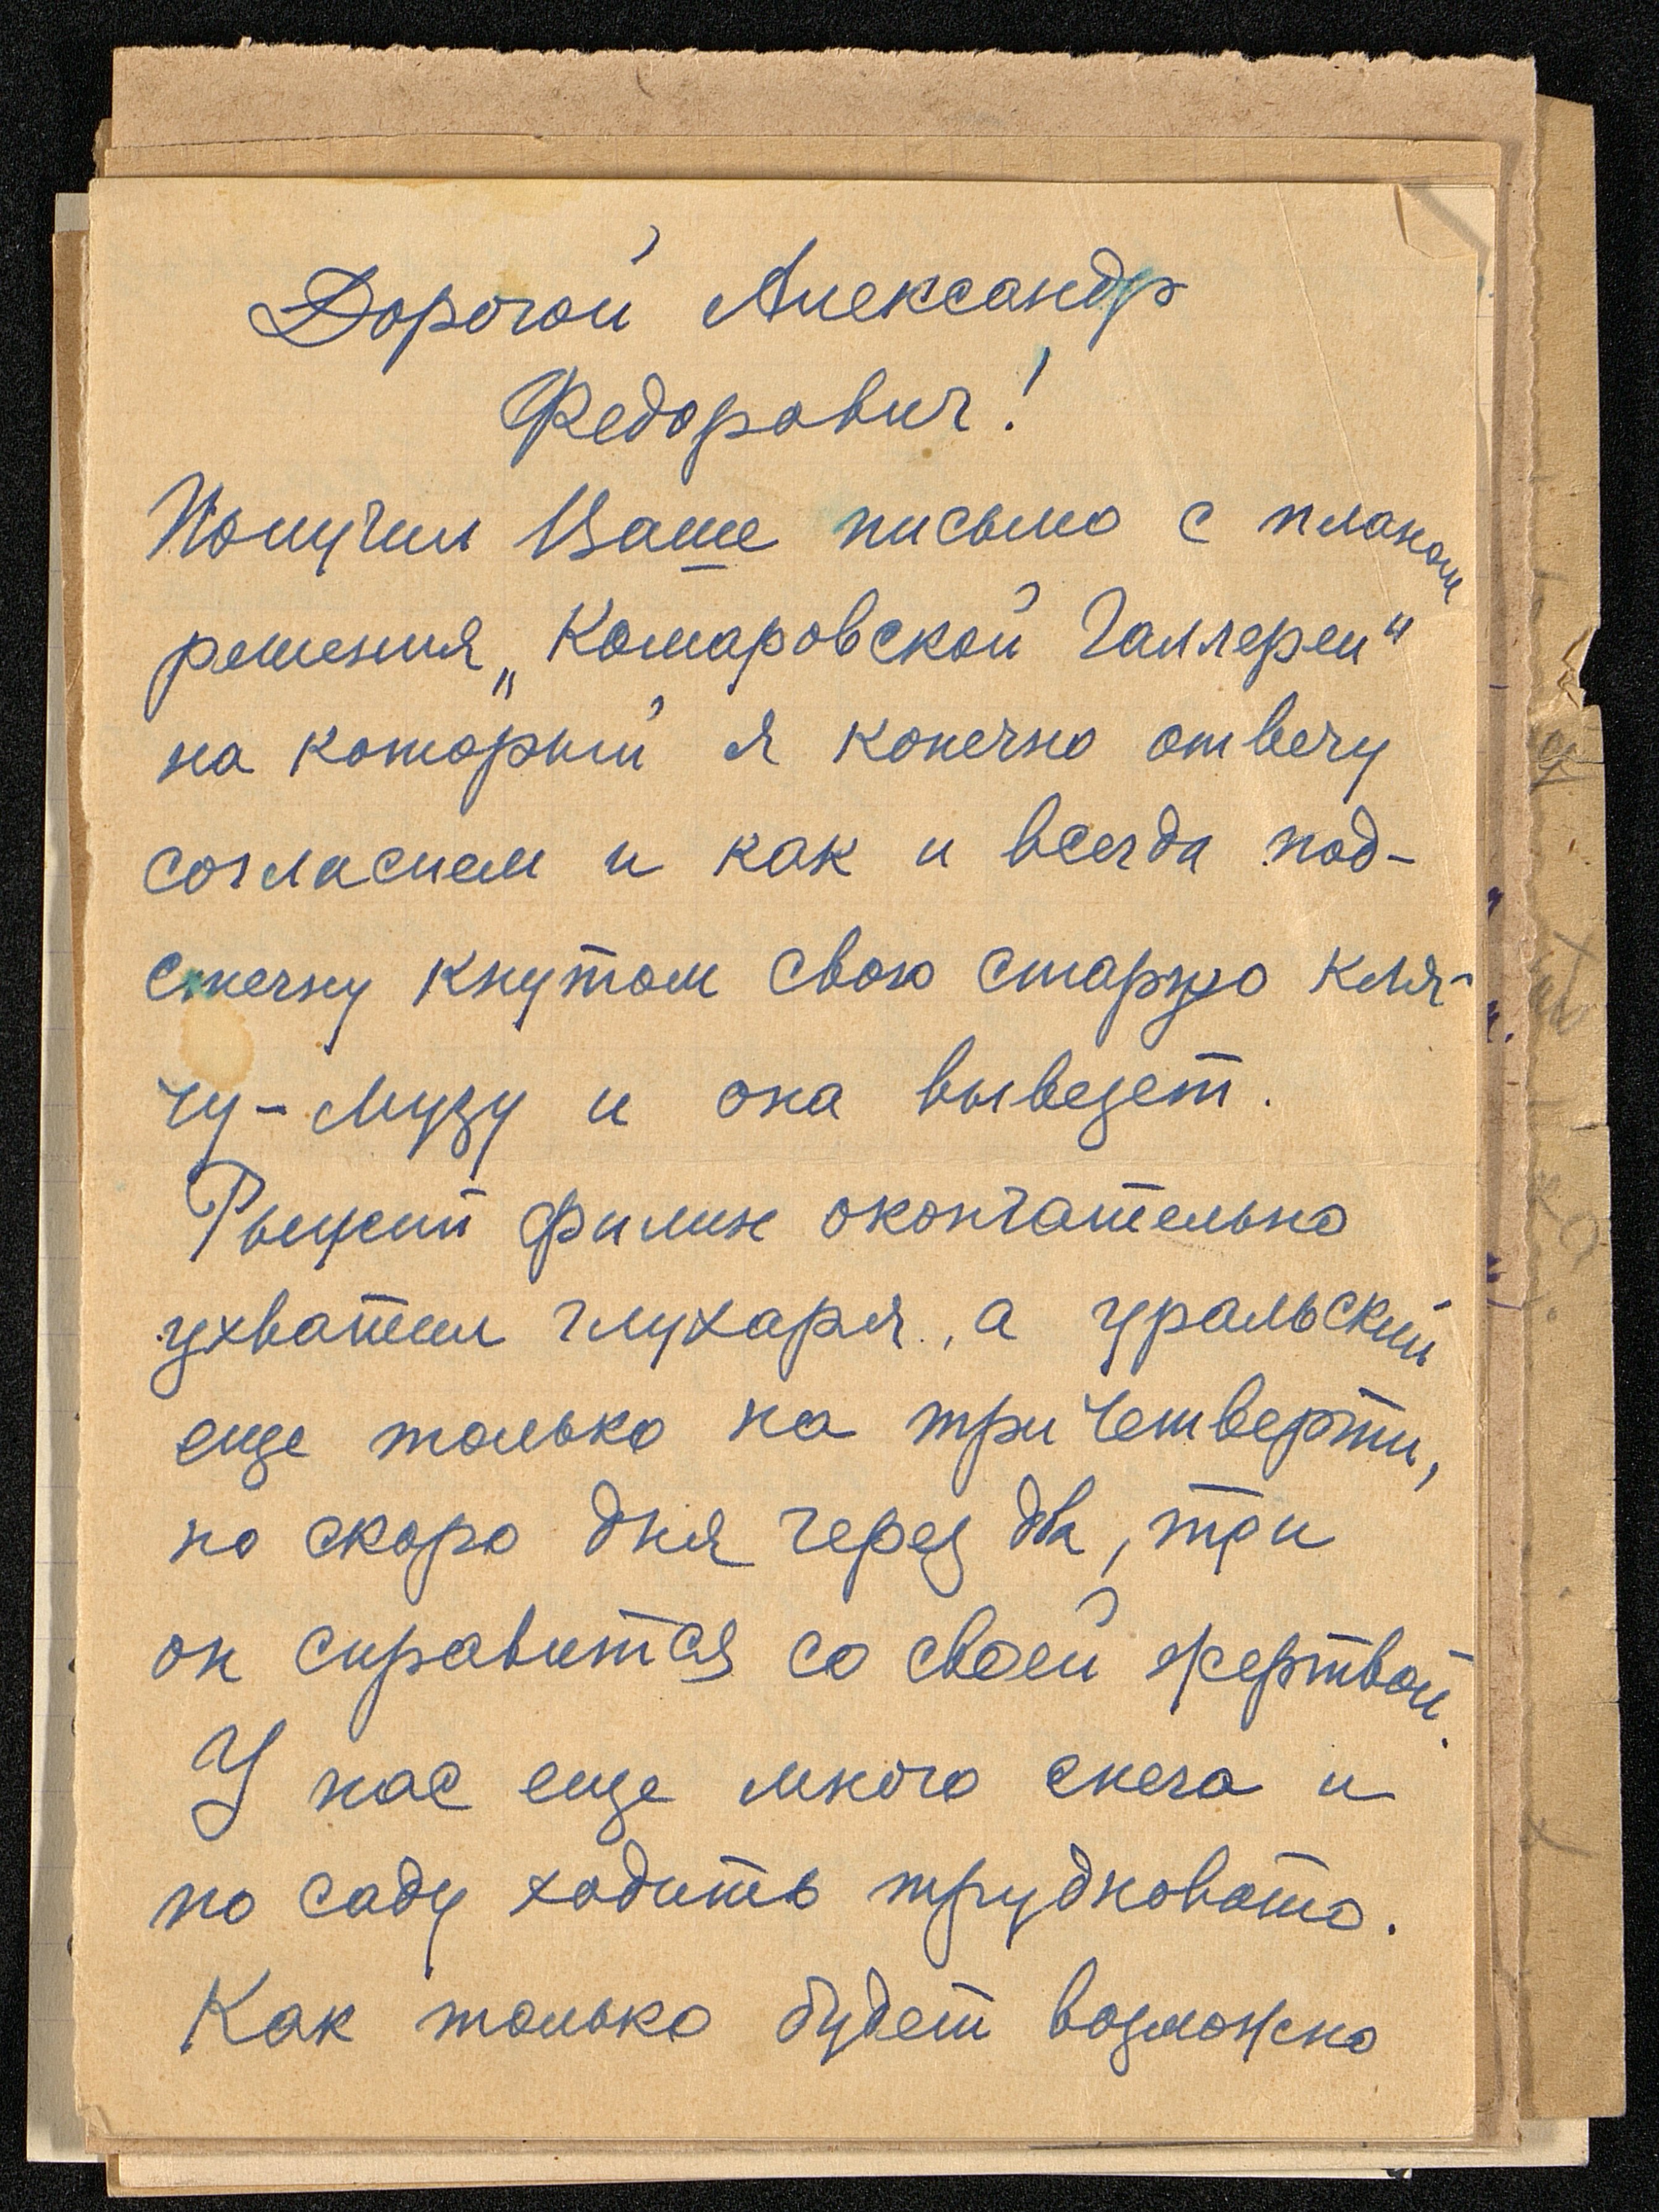 Дорогой Александр
Федорович!
Получил Ваше письмо с планом
решения „Комаровской Галлереи“
на который я конечно отвечу
согласием и как и всегда под-
стегну кнутом свою старую кля-
чу-Музу и она вывезет.
Рыжий филин окончательно
ухватил глухаря, а уральский
еще только на три четверти,
но скоро дня через два, три
он справится со своей жертвой.
У нас еще много снега и
по саду ходить трудновато.
Как только будет возможно